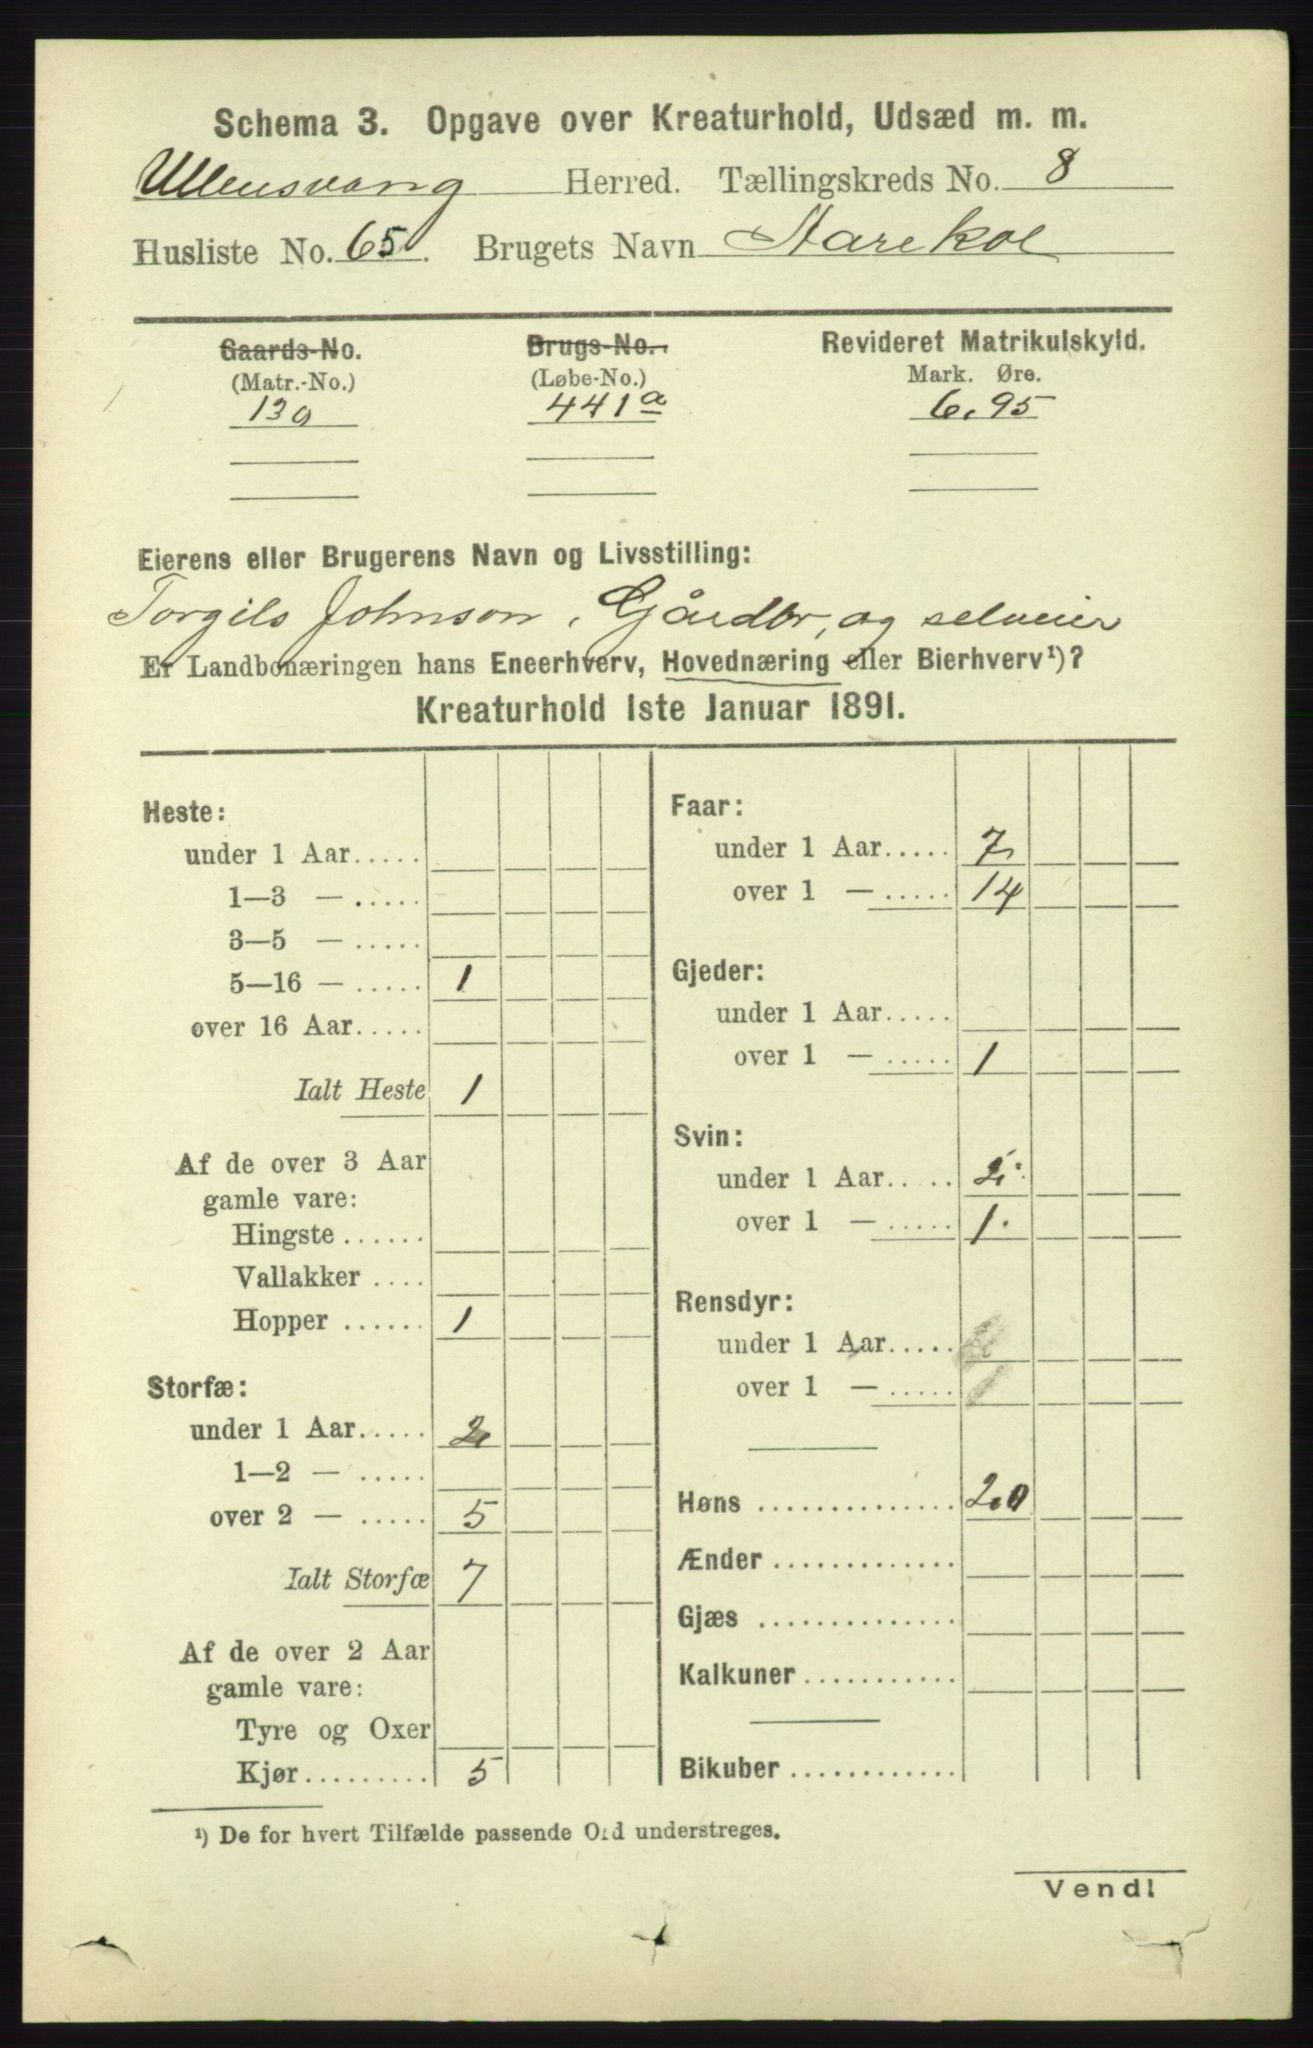 Schema 3. Opgave over Kreaturhold, Udsæd m. m.
Ullensvang Herred. Tællingskreds No. 8
Husliste No. 65. Brugets Navn Aarekol
Gaards-No. Brugs-No. Revideret Matrikulskyld.
(Matr.-No.) (Løbe-No.) Mark. Øre.
139 441a 6,95
Eierens eller Brugerens Navn og Livsstilling:
Torgils Johnson, Gårdbr, og selveier
Er Landbonæringen hans Eneerhverv, Hovednæring eller Bierhverv¹)?
Kreaturhold 1ste Januar 1891.
Heste:
under 1 Aar.....
1—3 — .....
3—5 — .....
5—16 — ..... 1
over 16 Aar.....
Ialt Heste 1
Af de over 3 Aar
gamle vare:
Hingste ......
Vallakker ....
Hopper ...... 1
Storfæ:
under 1 Aar..... 2
1—2 — .....
over 2 — ..... 5
Ialt Storfæ 7
Af de over 2 Aar
gamle vare:
Tyre og Oxer
Kjør......... 5
Faar:
under 1 Aar..... 7
over 1 — ..... 14
Gjeder:
under 1 Aar.....
over 1 — ..... 1
Svin:
under 1 Aar..... 2
over 1 — ..... 1.
Rensdyr:
under 1 Aar.....
over 1 — .....
Høns .............. 20
Ænder .............
Gjæs ..............
Kalkuner ...........
Bikuber ............
¹) De for hvert Tilfælde passende Ord understreges.
Vend!